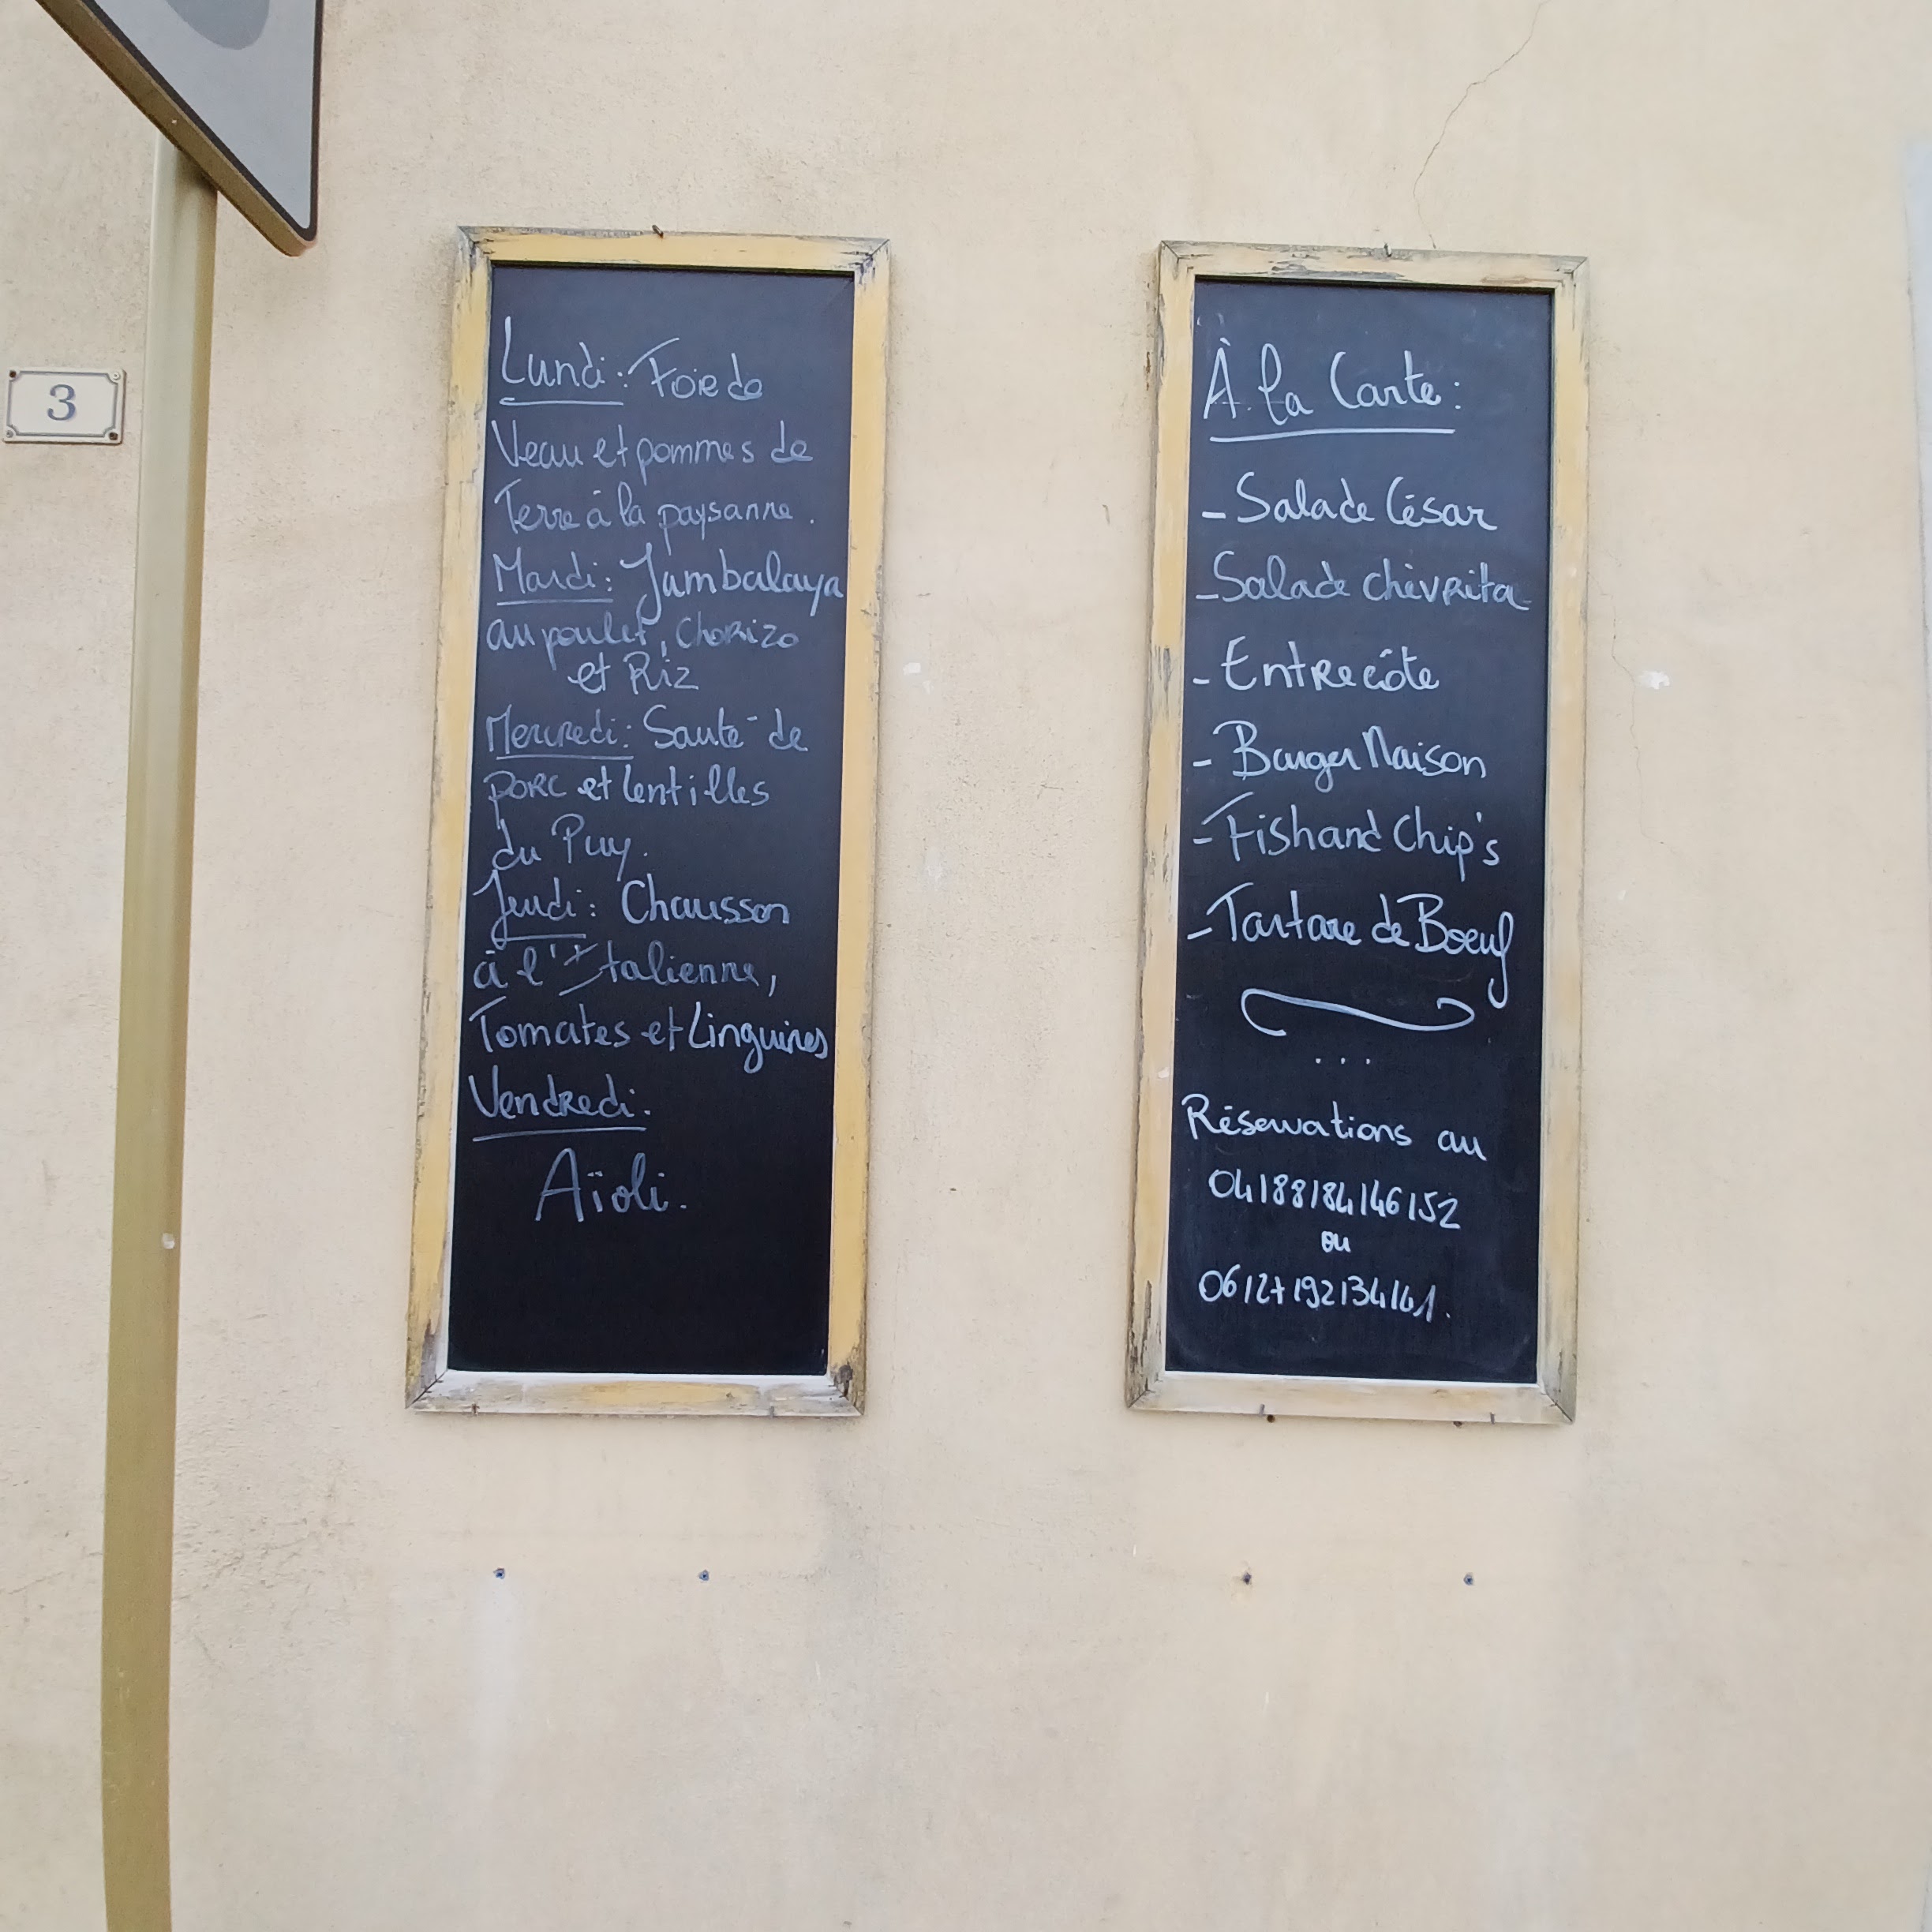 3
Lundi: Foie de
Veau et pommes de
Terre à la paysanne.
Mardi: Jambalaya
au poulet, chorizo
et Riz
Mercredi: Sauté de
porc et lentilles
du Puy.
Jeudi: Chausson
à l'Italienne,
Tomates et Linguines
Vendredi:
Aïoli.
À la Carte:
- Salade César
- Salade chèvrita
- Entrecôte
- Burger Maison
- Fish and Chip's
- Tartare de Boeuf
...
Réservations au
04/88/84/46/52
ou
06/27/92/34/41.